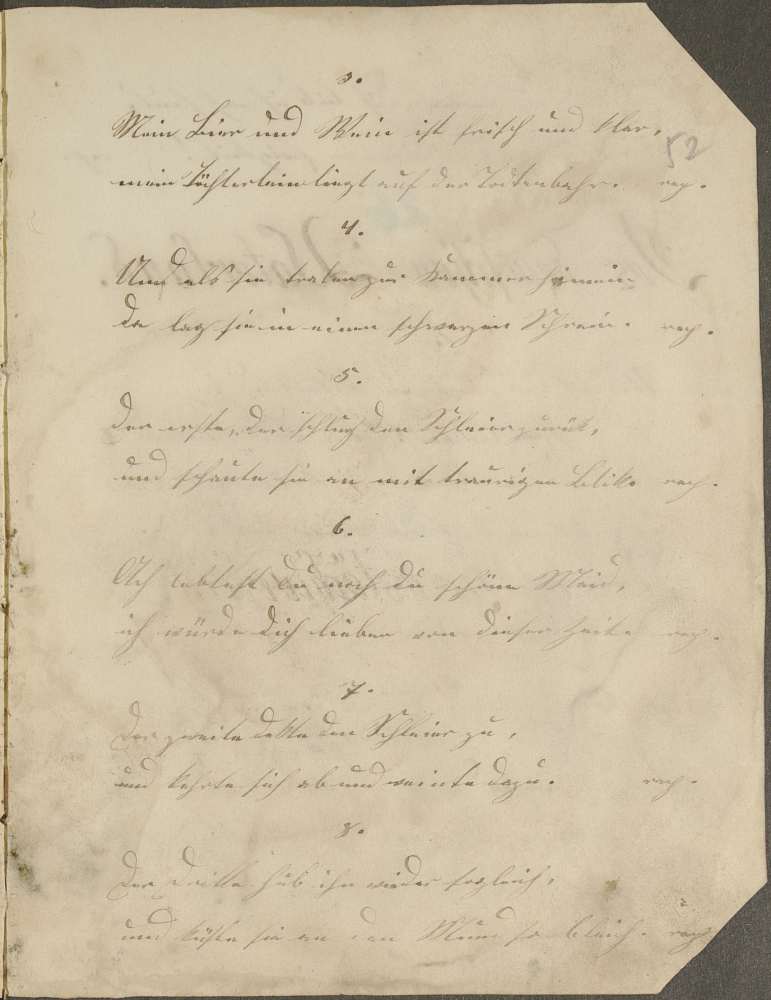 3.
Mein Bier und Wein ist frisch und klar,
52
mein Töchterlein liegt auf der Todtenbahr. rep.
4.
Und als sie traten zur Kammer hinnein
da lag sie in einen schwarzen Schrein. rep.
5.
Der erste, der schlug den Schleier zurük,
und schaute sie an mit traurigen Blik. rep.
6.
Ach lebtest Du noch Du schöne Maid,
ich würde Dich lieben von dieser Zeit rep.
7.
Der zweite dekte den Schleier zu,
und kehrte sich ab und weinte dazu. rep.
8.
Der Dritte hub ihn wieder sogleich,
und küßte sie an den Mund so bleich. rep